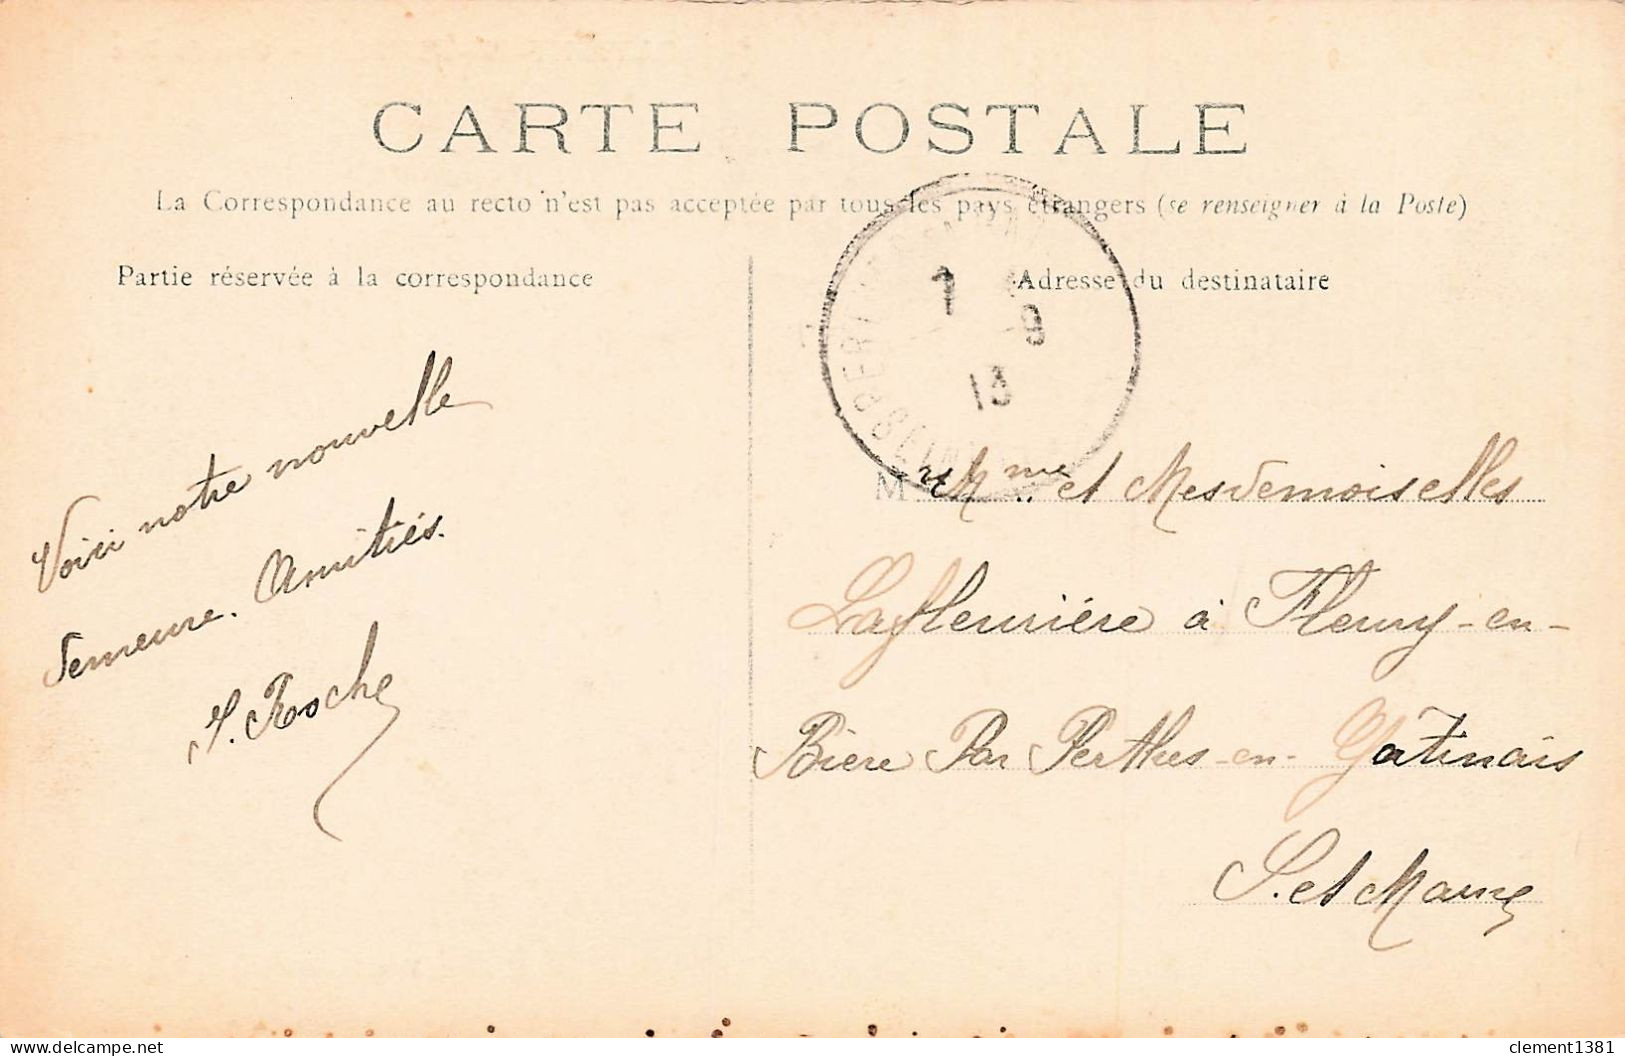 CARTE POSTALE
La Correspondance au recto n'est pas acceptée par tous les pays étrangers (se renseigner à la Poste)
Partie réservée à la correspondance
Adresse du destinataire
1 -9
13
Voici notre nouvelle
demeure. Amitiés.
Roche
M r Mme et Mesdemoiselles
Lafleurière à Fleury-en-
Bière Par Perthes-en-Gatinais
S. et Marne
delcampe.net
clement1381